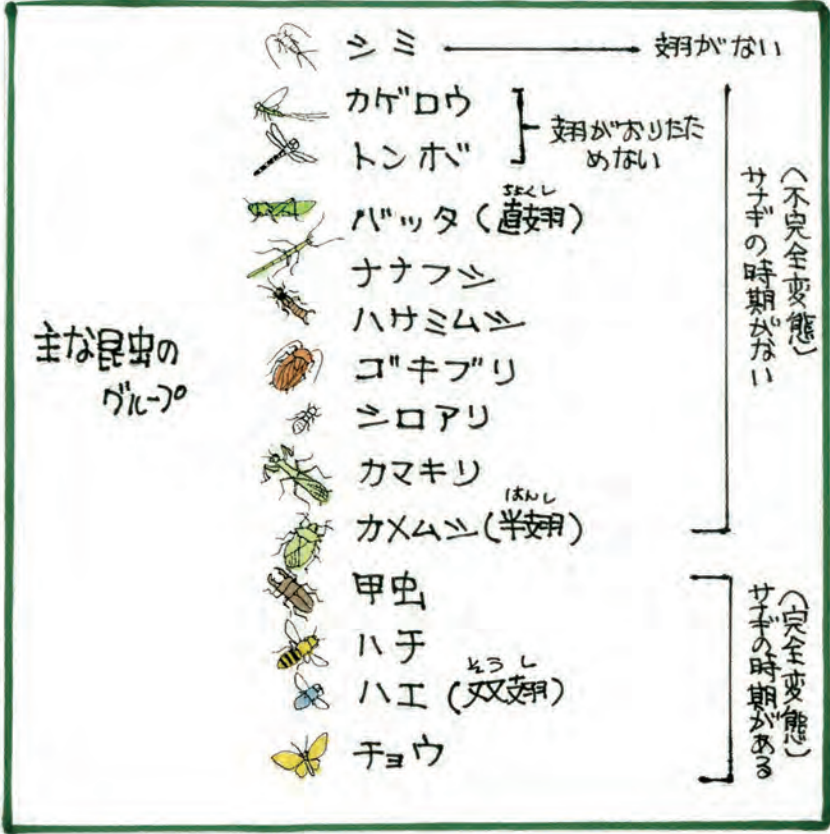 主な昆虫の
グループ
シミ
翅がない
カゲロウ
トンボ
翅がおりたた
めない
バッタ(直翅)
ちょくし
ナナフシ
ハサミムシ
ゴキブリ
シロアリ
カマキリ
カメムシ(半翅)
はんし
(不完全変態)
サナギの時期がない
甲虫
ハチ
ハエ(双翅)
そうし
チョウ
(完全変態)
サナギの時期がある